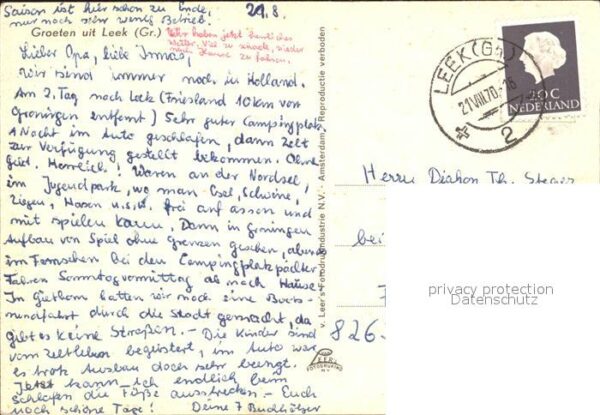 Saison ist hier schon zu Ende,
nur noch sehr wenig Betrieb!
21.8.
Groeten uit Leek (Gr.)
Wir haben jetzt herrliches
Wetter, viel zu schade, wieder
nach Hause zu fahren.
Lieber Opa, liebe Irmas,
wir sind immer noch in Holland.
Am 2. Tag nach Leek (Friesland 10 km von
Groningen entfernt) Sehr guter Campingplatz.
1 Nacht im Auto geschlafen, dann Zelt
zur Verfügung gestellt bekommen. Ohne
Geld. Herrlich! Waren an der Nordsee,
im Jugendpark, wo man Esel, Schweine,
Ziegen, Hasen u.s.w. frei anfassen und
mit spielen kann. Dann in Groningen
Aufbau von Spiel ohne Grenzen gesehen, abends
im Fernsehen bei den Campingplatzpächter
Fahren Sonntagvormittag ab nach Hause
In Giethorn hatten wir noch eine Boots-
rundfahrt durch die Stadt gemacht, da
gibt es keine Straßen. - Die Kinder sind
vom Zeltleben begeistert, im Auto war
es trotz Ausbau doch sehr beengt.
Jetzt kann ich endlich beim
Schlafen die Füße ausstrecken. - Euch
noch schöne Tage! Deine 7 Buchhölzer
v. Leer's Fotodrukindustrie N.V. - Amsterdam / Reproductie verboden
LEEK (Gr.)
21 VIII 70 - 16
2
20 C
NEDERLAND
Herrn Diakon Th. Steger
bei
7
826-
privacy protection
Datenschutz